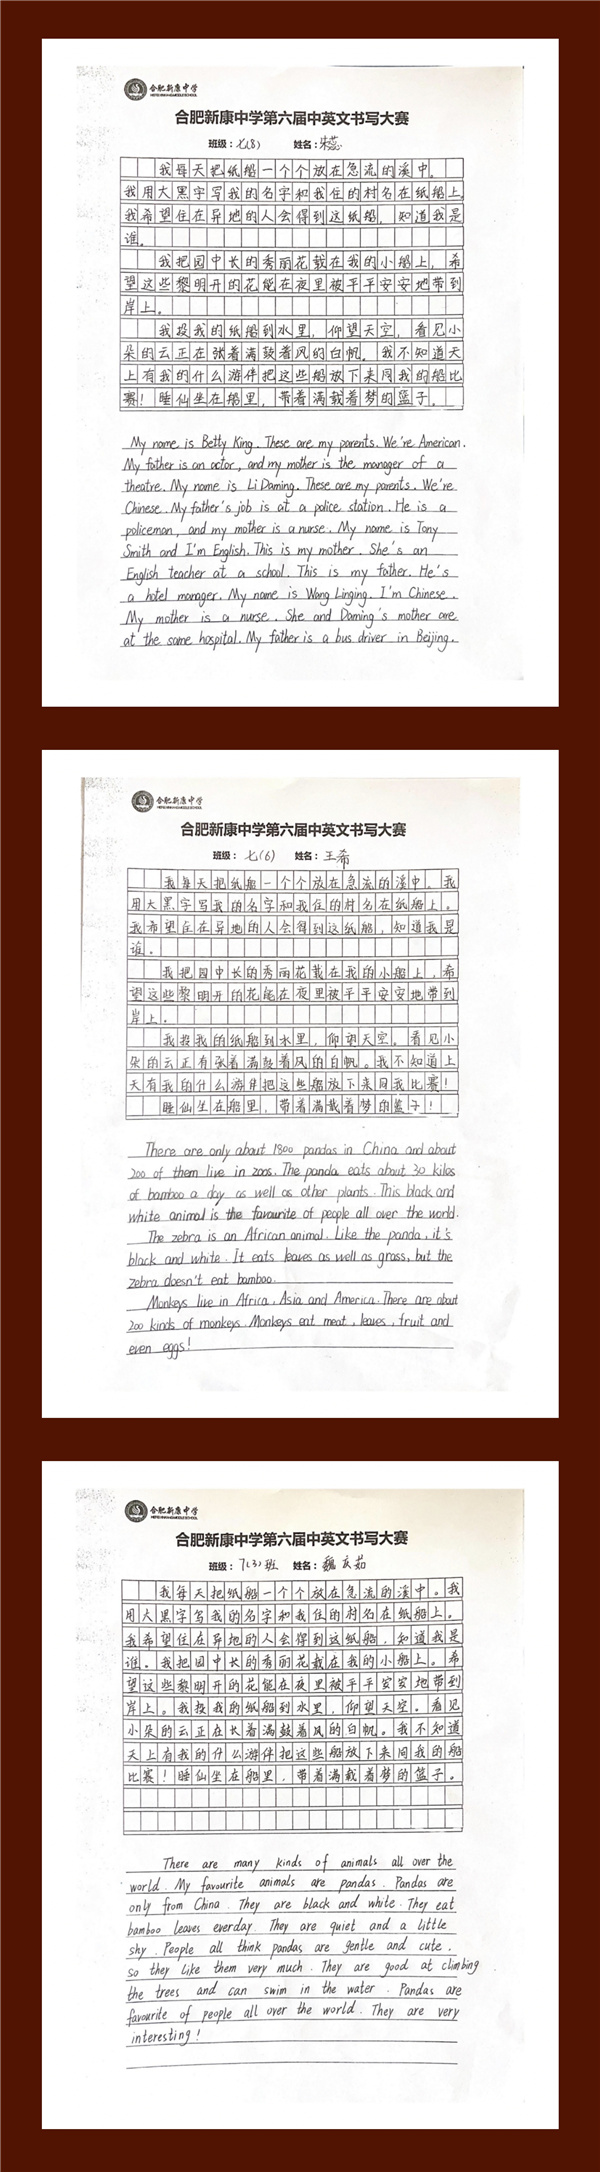 合肥新康中学
合肥新康中学第六届中英文书写大赛
班级：七(8) 姓名：朱蕊
我每天把纸船一个个放在急流的溪中。
我用大黑字写我的名字和我住的村名在纸船上。
我希望住在异地的人会得到这纸船，知道我是
谁。
我把园中长的秀丽花载在我的小船上，希
望这些黎明开的花能在夜里被平平安安地带到
岸上。
我投我的纸船到水里，仰望天空，看见小
朵的云正在张着满鼓着风的白帆。我不知道天
上有我的什么游伴把这些船放下来同我的船比
赛！睡仙坐在船里，带着满载着梦的篮子。
My name is Betty King. These are my parents. We're American.
My father is an actor, and my mother is the manager of a
theatre. My name is Li Daming. These are my parents. We're
Chinese. My father's job is at a police station. He is a
policeman, and my mother is a nurse. My name is Tony
Smith and I'm English. This is my mother. She's an
English teacher at a school. This is my father. He's
a hotel manager. My name is Wang Linging. I'm Chinese.
My mother is a nurse. She and Daming's mother are
at the same hospital. My father is a bus driver in Beijing.
合肥新康中学
合肥新康中学第六届中英文书写大赛
班级：七(6) 姓名：王希
我每天把纸船一个个放在急流的溪中。我
用大黑字写我的名字和我住的村名在纸船上。
我希望住在异地的人会得到这纸船，知道我是
谁。
我把园中长的秀丽花载在我的小船上，希
望这些黎明开的花能在夜里被平平安安地带到
岸上。
我投我的纸船到水里，仰望天空。看见小
朵的云正有张着满鼓着风的白帆。我不知道上
天有我的什么游伴把这些船放下来同我比赛！
睡仙坐在船里，带着满载着梦的篮子！
There are only about 1800 pandas in China and about
200 of them live in zoos. The panda eats about 30 kilos
of bamboo a day as well as other plants. This black and
white animal is the favourite of people all over the world.
The zebra is an African animal. Like the panda, it's
black and white. It eats leaves as well as grass, but the
zebra doesn't eat bamboo.
Monkeys live in Africa, Asia and America. There are about
200 kinds of monkeys. Monkeys eat meat, leaves, fruit and
even eggs!
合肥新康中学
合肥新康中学第六届中英文书写大赛
班级：7(3)班 姓名：魏文茹
我每天把纸船一个个放在急流的溪中。我
用大黑字写我的名字和我住的村名在纸船上。
我希望住在异地的人会得到这纸船，知道我是
谁。我把园中长的秀丽花载在我的小船上。希
望这些黎明开的花能在夜里被平平安安地带到
岸上。我投我的纸船到水里，仰望天空。看见
小朵的云正在长着满鼓着风的白帆。我不知道
天上有我的什么游伴把这些船放下来同我的船
比赛！睡仙坐在船里，带着满载着梦的篮子。
There are many kinds of animals all over the
world. My favourite animals are pandas. Pandas are
only from China. They are black and white. They eat
bamboo leaves everday. They are quiet and a little
shy. People all think pandas are gentle and cute,
so they like them very much. They are good at climbing
the trees and can swim in the water. Pandas are
favourite of people all over the world. They are very
interesting!